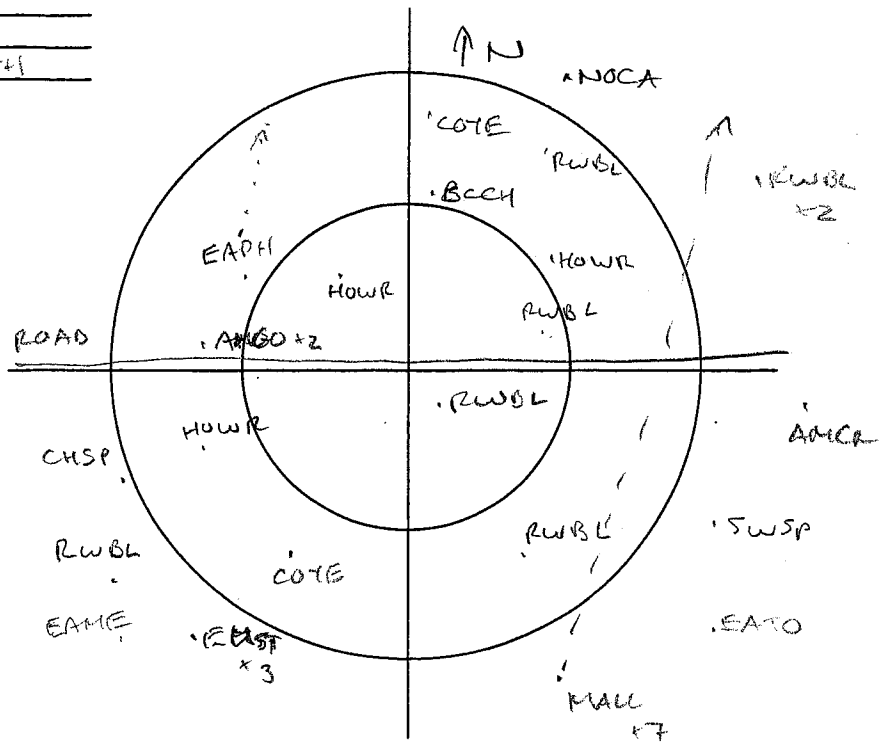 ↑ N
NOCA
COYE
RWBL
RWBL
×2
BCCH
EAPH
HOWR
HOWR
RWBL
ROAD
AMGO ×2
RWBL
HOWR
AMCR
CHSP
RWBL
SWSP
RWBL
COYE
EAME
EATO
×3
MALL
×7